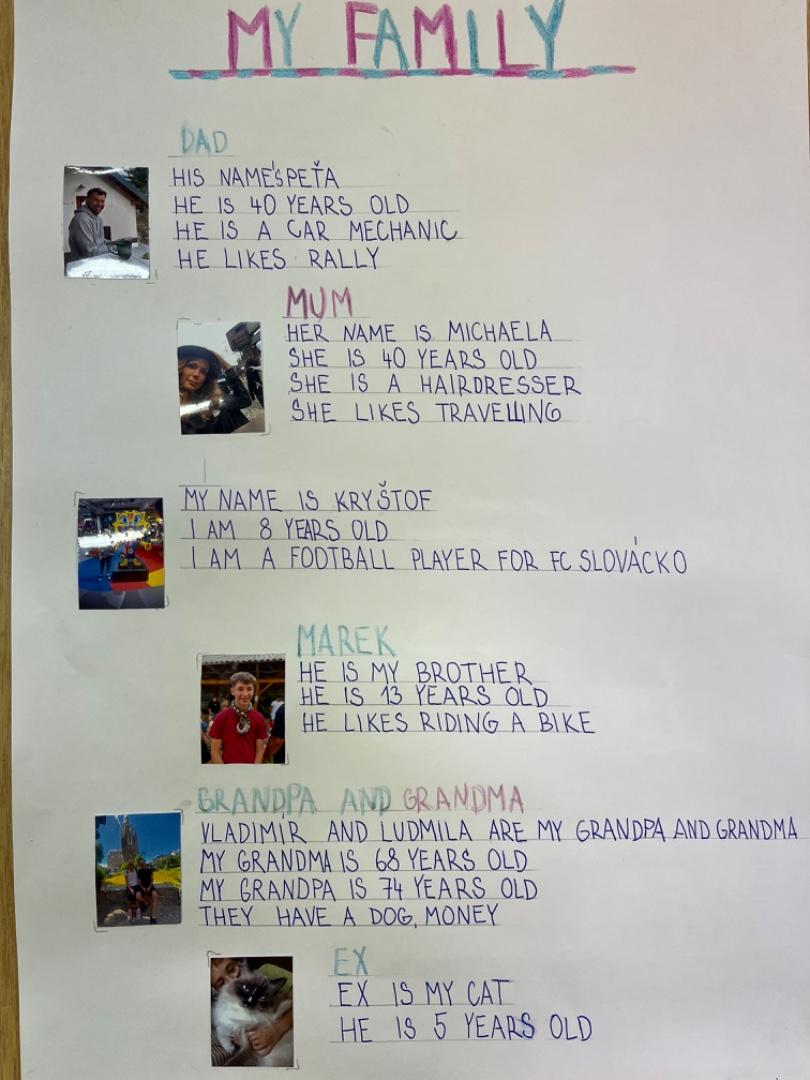 MY FAMILY
DAD
HIS NAME'S PEŤA
HE IS 40 YEARS OLD
HE IS A CAR MECHANIC
HE LIKES RALLY
MUM
HER NAME IS MICHAELA
SHE IS 40 YEARS OLD
SHE IS A HAIRDRESSER
SHE LIKES TRAVELLING
MY NAME IS KRYŠTOF
I AM 8 YEARS OLD
I AM A FOOTBALL PLAYER FOR FC SLOVÁCKO
MAREK
HE IS MY BROTHER
HE IS 13 YEARS OLD
HE LIKES RIDING A BIKE
GRANDPA AND GRANDMA
VLADIMÍR AND LUDMILA ARE MY GRANDPA AND GRANDMA
MY GRANDMA IS 68 YEARS OLD
MY GRANDPA IS 74 YEARS OLD
THEY HAVE A DOG, MONEY
EX
EX IS MY CAT
HE IS 5 YEARS OLD